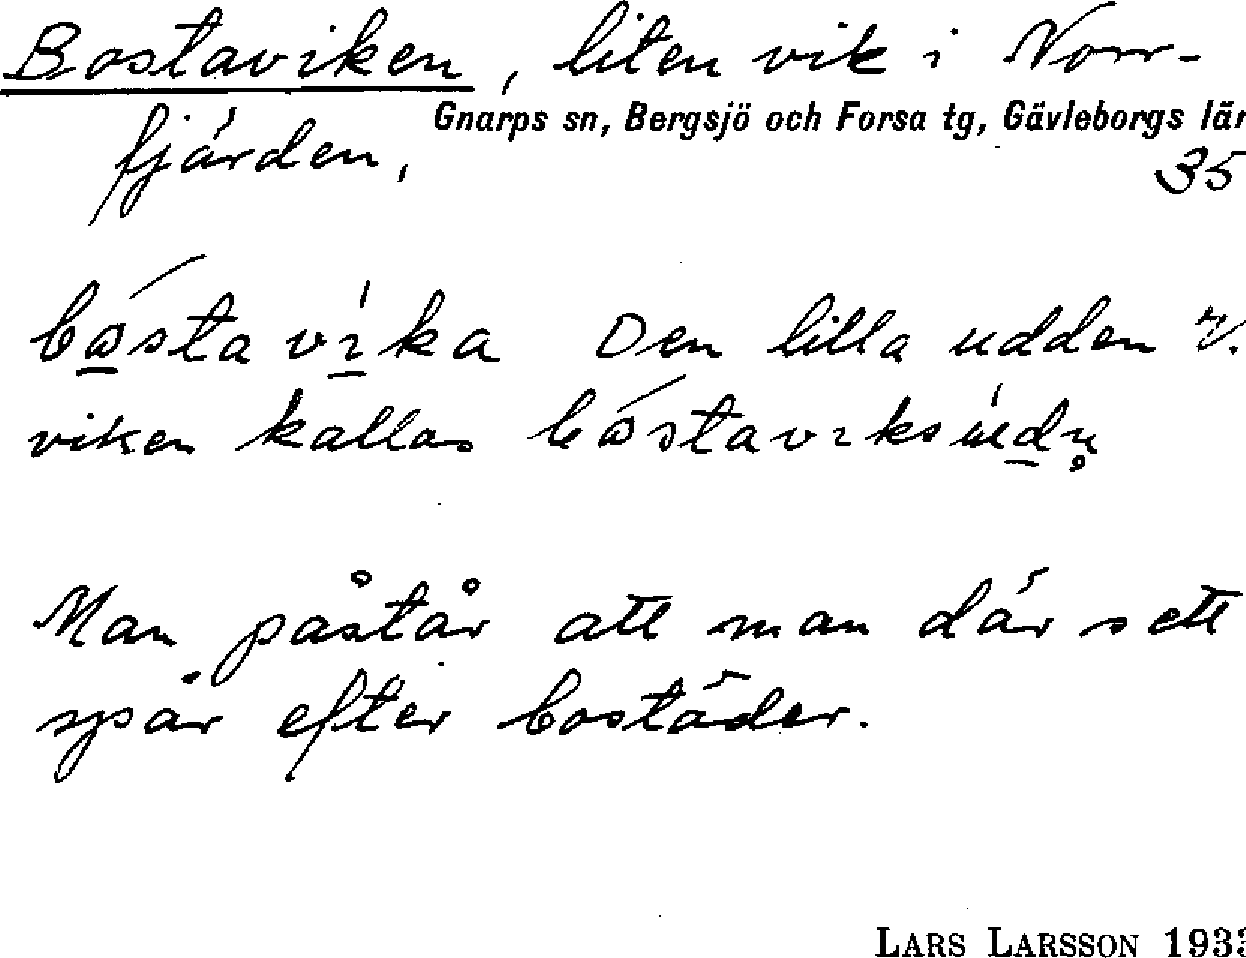 Bostaviken, liten vik i Norr-
Gnarps sn, Bergsjö och Forsa tg, Gävleborgs län
fjärden,
35
Den lilla udden V.
viken kallas
Man påstår att man där sett
spår efter bostäder.
LARS LARSSON 193